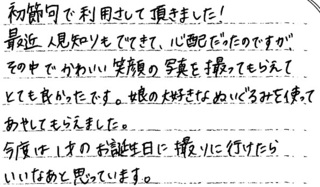 初節句で利用させて頂きました!
最近人見知りもでてきて、心配だったのですが、
その中でかわいい笑顔の写真を撮ってもらえて
とても良かったです。娘の大好きなぬいぐるみを使って
あやしてもらえました。
今度は1才のお誕生日に撮りに行けたら
いいなあと思っています。